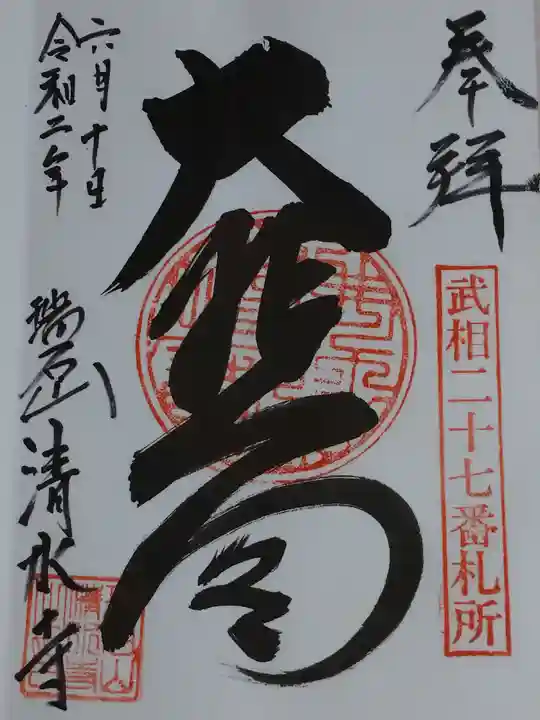 奉拝
武相二十七番札所
大悲閣
令和二年
六月十日
瑞石山
清水寺